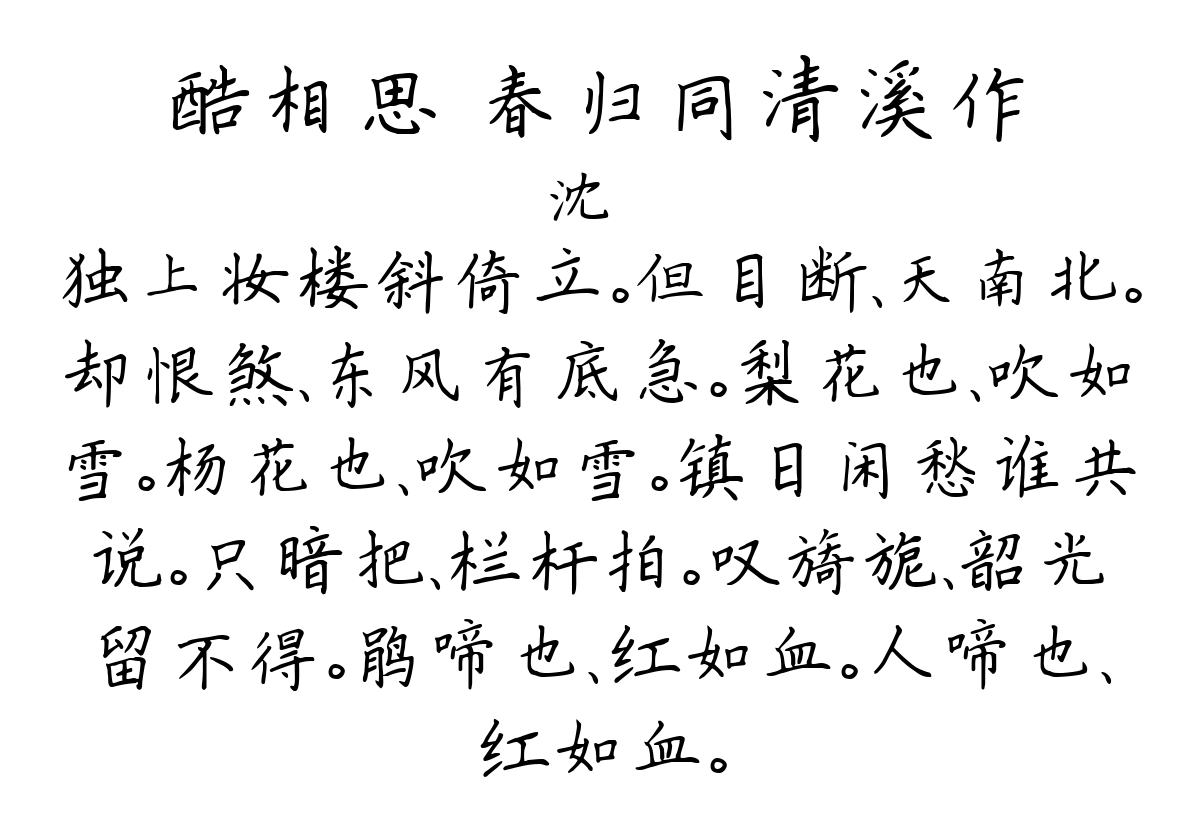 酷相思 春归同清溪作
沈
独上妆楼斜倚立。但目断、天南北。
却恨煞、东风有底急。梨花也、吹如
雪。杨花也、吹如雪。镇日闲愁谁共
说。只暗把、栏杆拍。叹旖旎、韶光
留不得。鹃啼也、红如血。人啼也、
红如血。